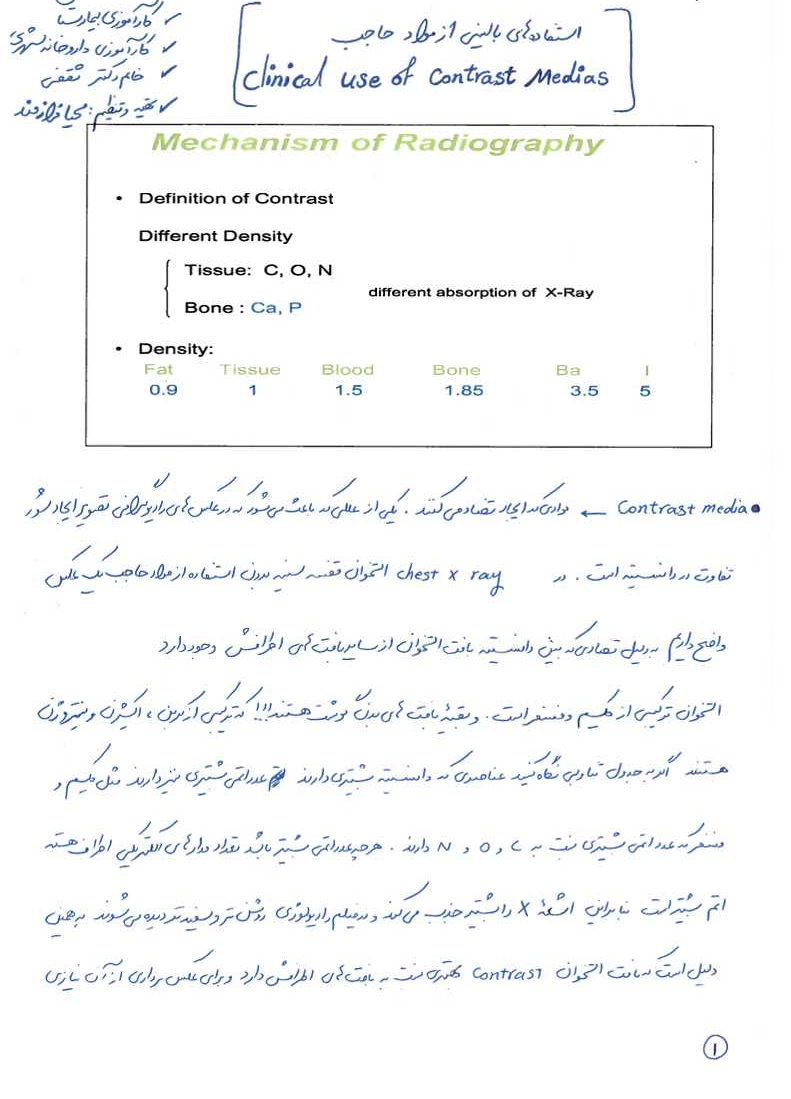 استفاده‌های بالینی از مواد حاجب
Clinical use of Contrast Medias
✓ کارآموزی بیمارستا
✓ کارآموزی داروخانه شهری
✓ خانم دکتر ثقفی
✓ تهیه و تنظیم:
Mechanism of Radiography
• Definition of Contrast
Different Density
Tissue: C, O, N
different absorption of X-Ray
Bone : Ca, P
• Density:
Fat Tissue Blood Bone Ba I
0.9 1 1.5 1.85 3.5 5
• Contrast media ← موادی که ایجاد تضاد می کنند . یکی از عللی که باعث می شود که در عکس های رادیوگرافی تصویر ایجاد شود
تفاوت در دانسیته است . در chest x ray استخوان قفسه سینه بدون استفاده از مواد حاجب یک عکس
واضح داریم به دلیل تضادی که بین دانسیته بافت استخوان از سایر بافت های اطرافش وجود دارد
استخوان ترکیبی از کلسیم و فسفر است . و بقیهٔ بافت های بدن گوشت هستند!!! که ترکیبی از کربن ، اکسیژن و نیتروژن
هستند اگر به جدول تناوبی نگاه کنید عناصری که دانسیته بیشتری دارند عدد اتمی بیشتری نیز دارند مثل کلسیم و
فسفر که عدد اتمی بیشتری نسبت به C و O و N دارند . هرچه عدد اتمی بیشتر باشد تعداد مدارهای الکتریکی اطراف هسته
اتم بیشتر است بنابراین اشعهٔ X را بیشتر جذب می کند و در فیلم رادیولوژی روشن تر و سفید تر دیده می شوند به همین
دلیل است که بافت استخوان contrast بهتری نسبت به بافت های اطرافش دارد و برای عکس برداری از آن نیازی
۱